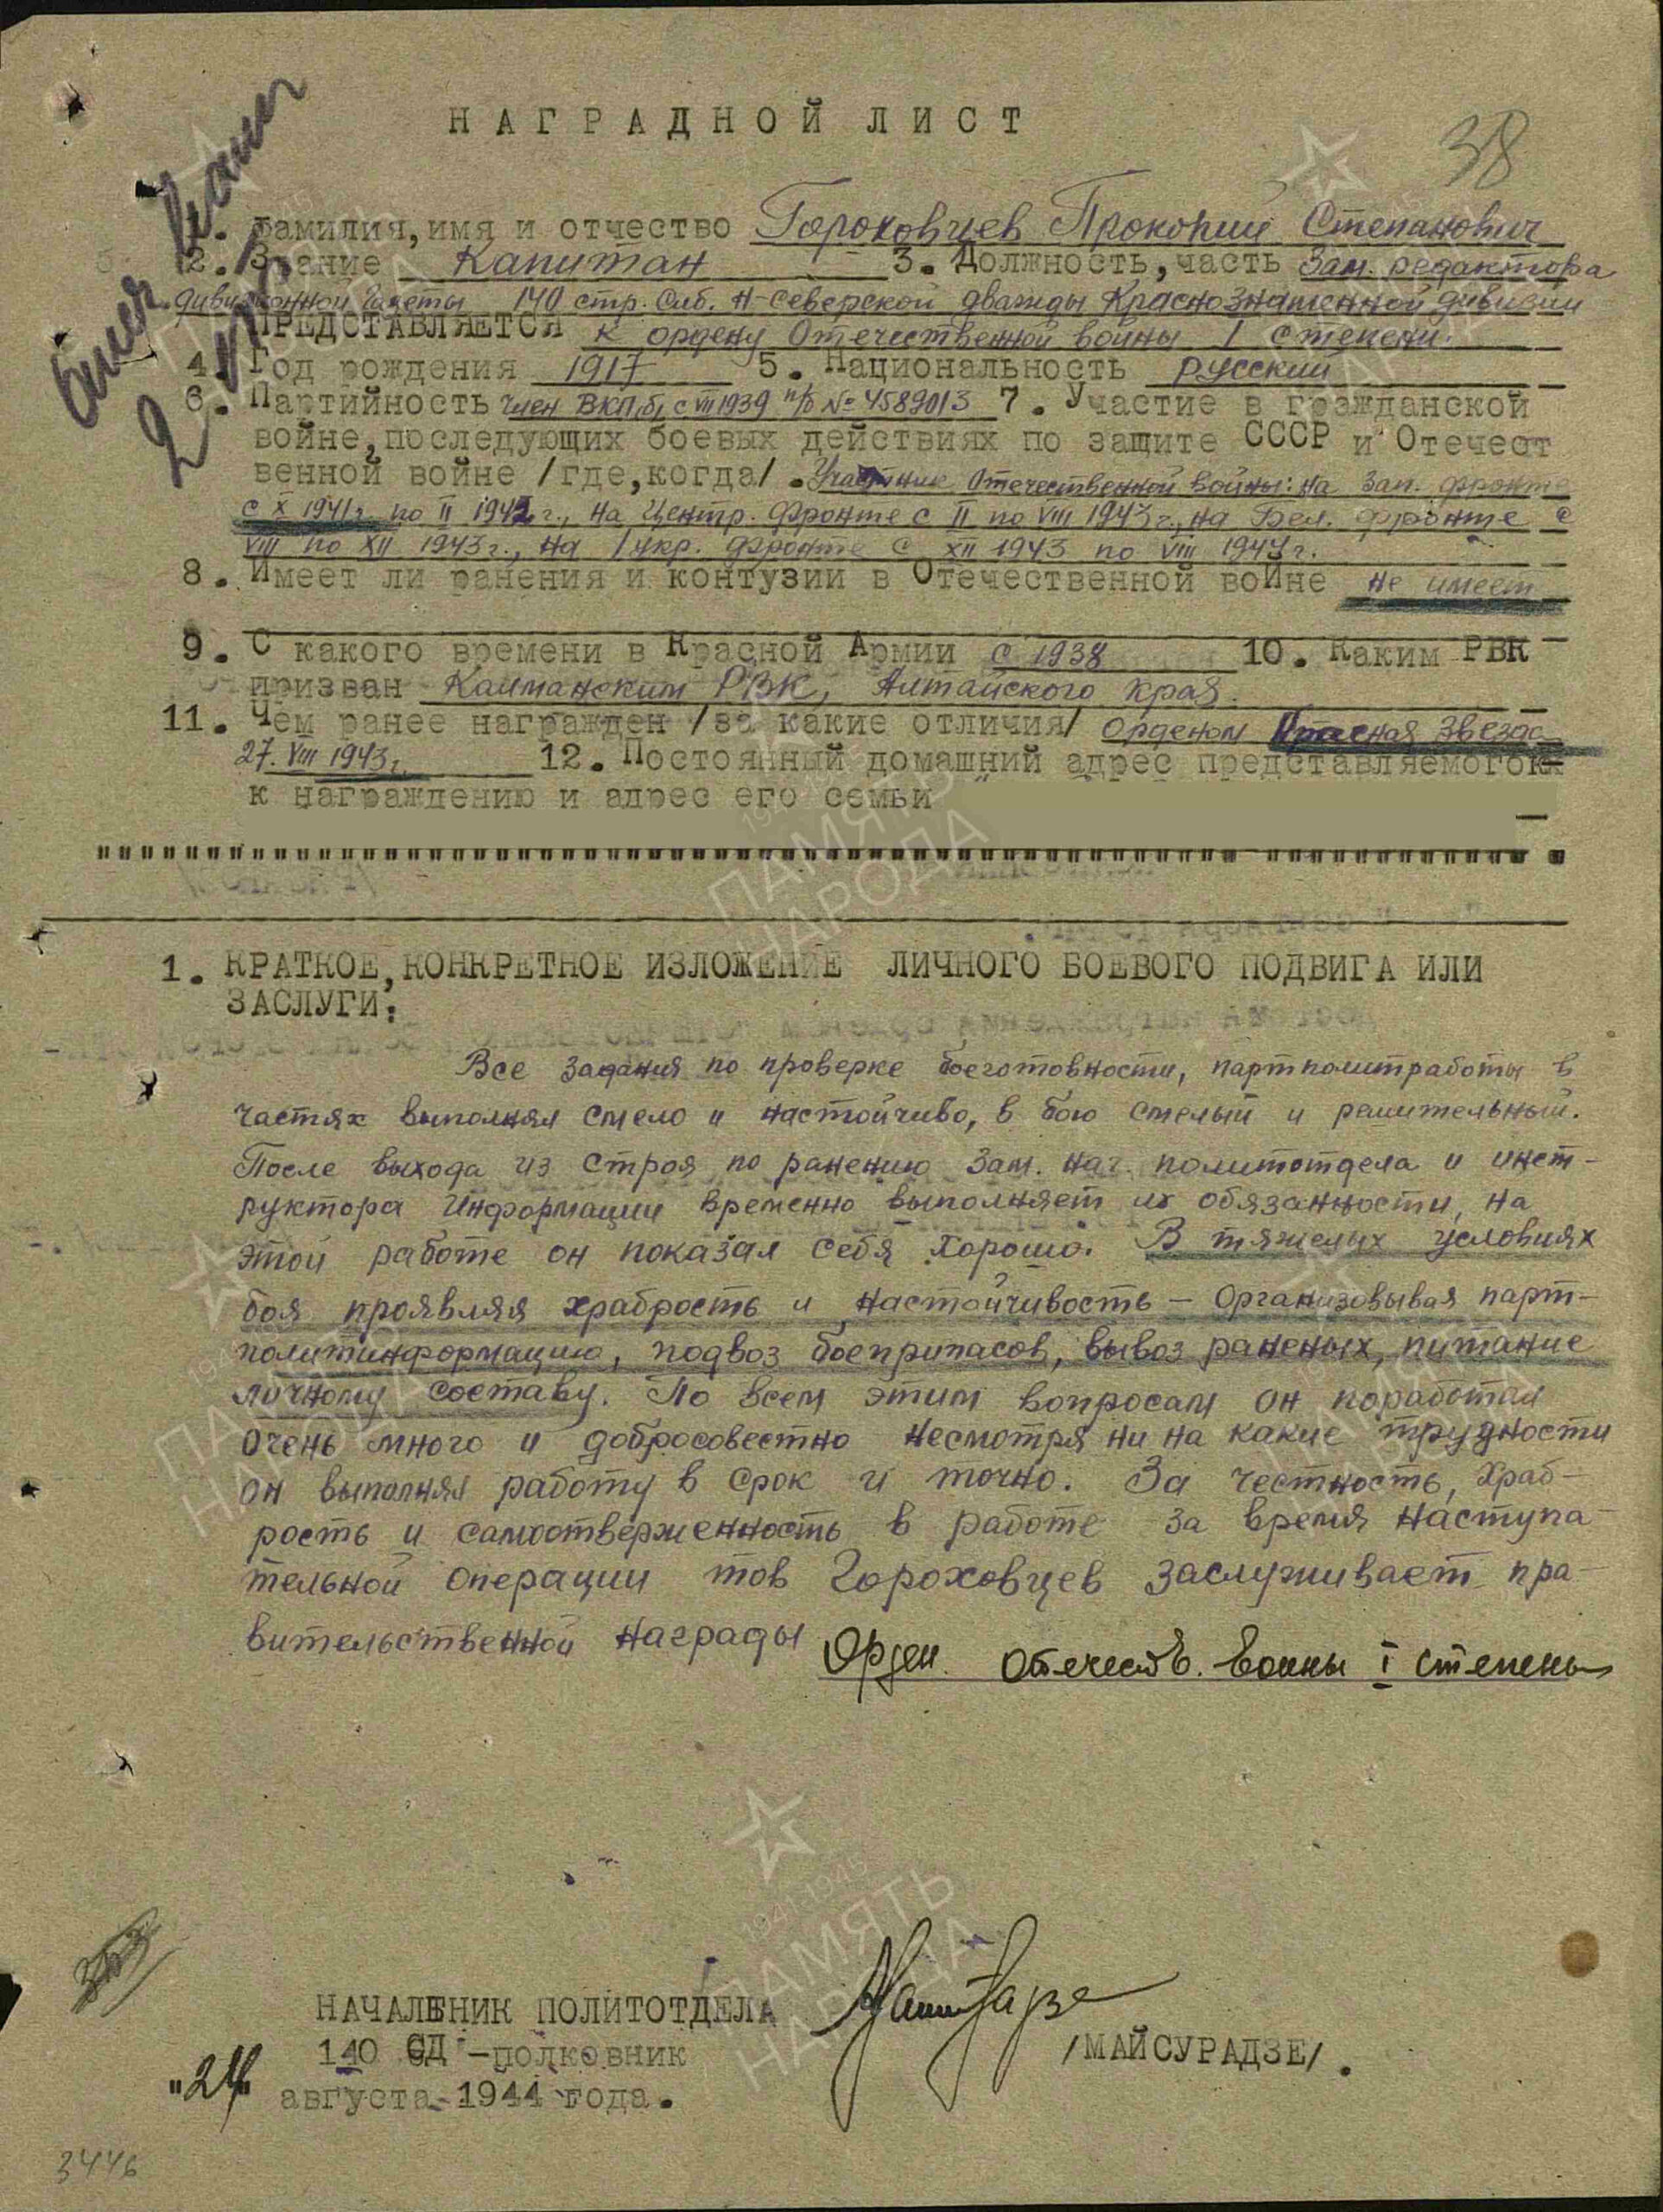 НАГРАДНОЙ ЛИСТ
38
1. Фамилия, имя и отчество Гороховцев Прокопий Степанович
2. Звание Капитан 3. Должность, часть Зам. редактора
дивизионной газеты 140 стр. Сиб. Н-Северской дважды Краснознаменной дивизии
ПРЕДСТАВЛЯЕТСЯ к ордену Отечественной войны I степени.
4. Год рождения 1917 5. Национальность русский
6. Партийность член ВКП(б) с VII 1939 п/б № 4589013 7. Участие в гражданской
войне, последующих боевых действиях по защите СССР и Отечест
венной войне /где, когда/. Участник Отечественной войны: на Зап. фронте
с X 1941 г. по II 1942 г., на Центр. фронте с II по VIII 1943 г., на Бел. фронте с
VIII по XII 1943 г., на 1 Укр. фронте с XII 1943 по VIII 1944 г.
8. Имеет ли ранения и контузии в Отечественной войне не имеет
9. С какого времени в Красной Армии с 1938 10. Каким РВК
призван Калманским РВК, Алтайского края.
11. Чем ранее награжден /за какие отличия/ орденом Красная Звезда
27. VIII 1943 г. 12. Постоянный домашний адрес представляемого
к награждению и адрес его семьи
1. КРАТКОЕ, КОНКРЕТНОЕ ИЗЛОЖЕНИЕ ЛИЧНОГО БОЕВОГО ПОДВИГА ИЛИ
ЗАСЛУГИ:
Все задания по проверке боеготовности, партполитработы в
частях выполнял смело и настойчиво, в бою смелый и решительный.
После выхода из строя по ранению зам. нач. политотдела и инст-
руктора информации временно выполняет их обязанности, на
этой работе он показал себя хорошо. В тяжелых условиях
боя проявляя храбрость и настойчивость – организовывая парт-
политинформацию, подвоз боеприпасов, вывоз раненых, питание
личному составу. По всем этим вопросам он поработал
очень много и добросовестно несмотря ни на какие трудности
он выполнял работу в срок и точно. За честность, храб-
рость и самоотверженность в работе за время наступа-
тельной операции тов Гороховцев заслуживает пра-
вительственной награды Орден Отечеств. Войны I степень
НАЧАЛЬНИК ПОЛИТОТДЕЛА
140 СД –полковник
/МАЙСУРАДЗЕ/.
"24" августа 1944 года.
3446
ПАМЯТЬ НАРОДА
1941-1945